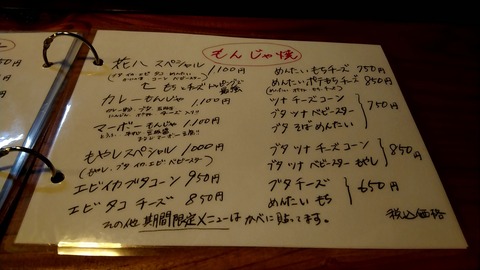 もんじゃ焼
花八 スペシャル 1,100円
(ブタ イカ エビ タコ めんたい
コーン ベビースター)
もち チーズ
カレーもんじゃ 1,100円
マーボーもんじゃ 1,100円
もやしスペシャル 1,000円
(もやし ブタ イカ エビ ベビースター)
エビイカブタコーン 950円
エビ タコ チーズ 850円
その他 期間限定メニューは かべに貼ってます。
めんたい もちチーズ 750円
めんたい ポテもちチーズ 850円
ツナ チーズ コーン
ブタ ツナ ベビースター 750円
ブタ そば めんたい
ブタ ツナ チーズ コーン
ブタ ツナ ベビースター もやし 850円
ブタ チーズ
めんたい もち 650円
税込価格